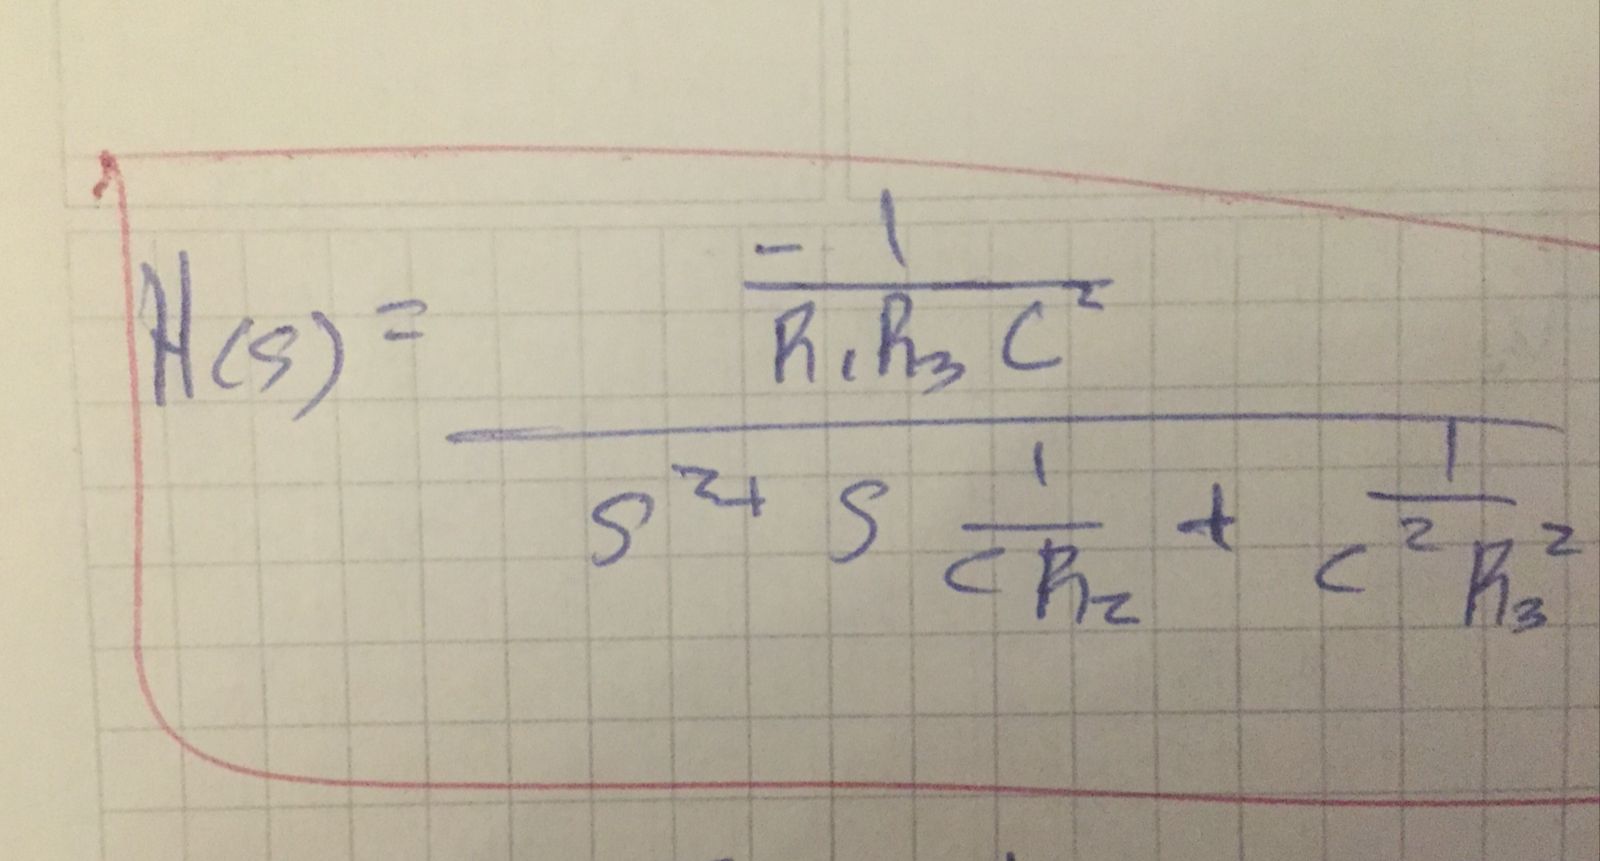 H(s) = \frac{\frac{-1}{R_1 R_3 C^2}}{S^2 + S \frac{1}{C R_2} + \frac{1}{C^2 R_3^2}}